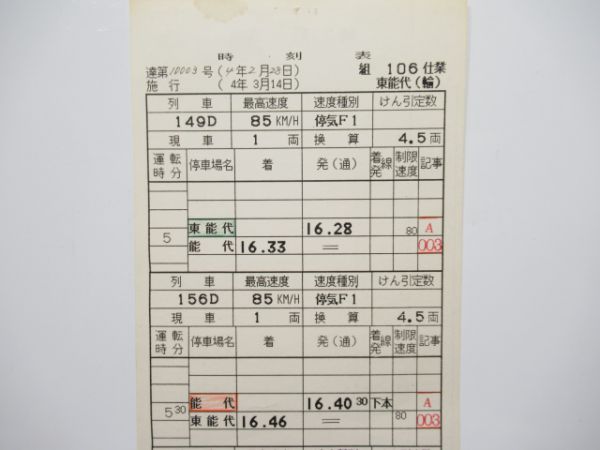 時刻表
達第10003号(4年2月28日) 組 106仕業
施行 (4年3月14日) 東能代(輪)
列車 最高速度 速度種別 けん引定数
149D 85KM/H 停気F1
現車 1両 換算 4.5両
運転時分 停車場名 着 発(通) 着発線 制限速度 記事
東能代 16.28 80 A
5
能代 16.33 = 003
列車 最高速度 速度種別 けん引定数
156D 85KM/H 停気F1
現車 1両 換算 4.5両
運転時分 停車場名 着 発(通) 着発線 制限速度 記事
能代 16.40 30 下本 A
5 30 80
東能代 16.46 = 003